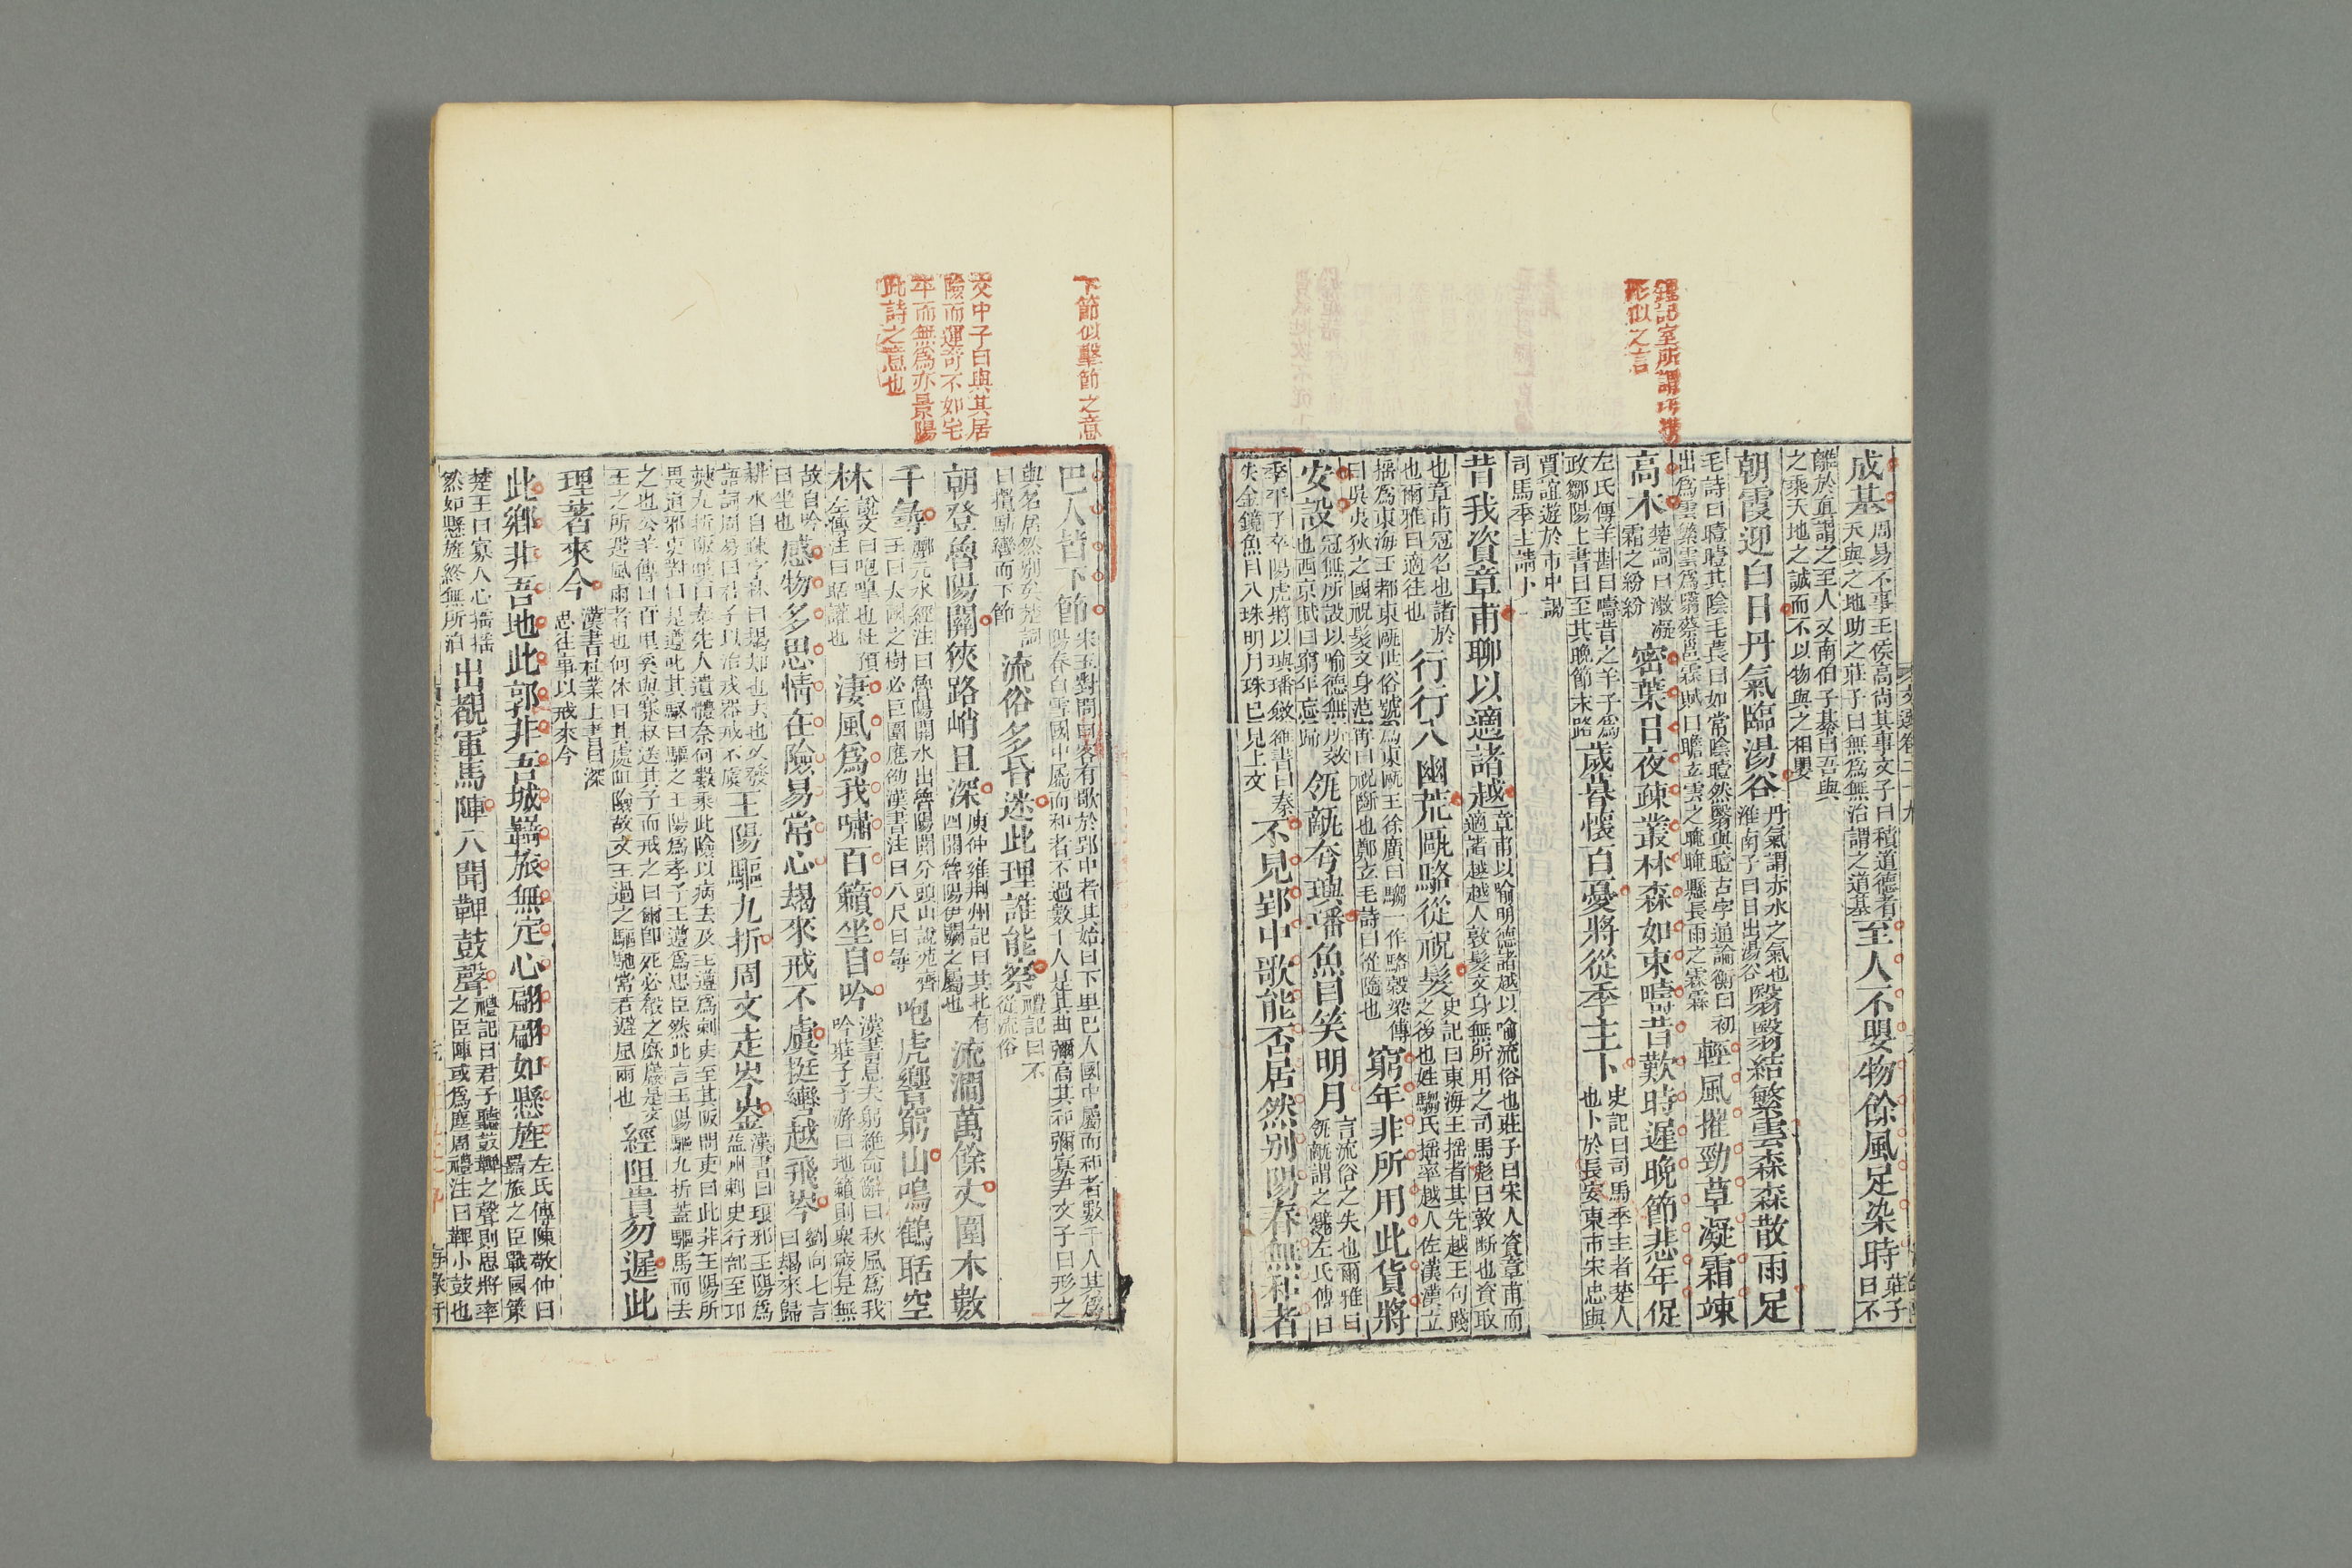 鍾記室所謂巧構
形似之言
成基周易不事王侯高尚其事文子曰積道德者天與之地助之莊子曰無爲無治謂之道基至人不嬰物餘風足染時莊子曰不
離於真謂之至人又南伯子綦曰吾與之乘天地之誠而不以物與之相嬰
朝霞迎白日丹氣臨湯谷丹氣謂赤水之氣也淮南子曰日出湯谷翳翳結繁雲森森散雨足
毛詩曰曀曀其陰毛萇曰如常陰曀然翳與曀古字通論衡曰初出爲雲繁雲爲翳蔡邕霖賦曰瞻玄雲之晻晻懸長雨之霖霖輕風摧勁草凝霜竦
高木楚詞曰漱凝霜之紛紛密葉日夜疎叢林森如束疇昔歎時遲晚節悲年促
左氏傳羊斟曰疇昔之羊子爲政鄒陽上書曰至其晚節末路歲暮懷百憂將從季主卜史記曰司馬季主者楚人也卜於長安東市宋忠與
賈誼遊於市中謁司馬季主請卜
昔我資章甫聊以適諸越章甫以喻明德諸越以喻流俗也莊子曰宋人資章甫而適諸越越人敦髮文身無所用之司馬彪曰敦斷也資取
也章甫冠名也諸於也爾雅曰適往也行行入幽荒甌駱從祝髮史記曰東海王搖者其先越王句踐之後也姓騶氏搖率越人佐漢漢立
搖爲東海王都東甌世俗號爲東甌王徐廣曰騶一作駱穀梁傳曰吳夷狄之國祝髮文身范甯曰祝斷也鄭玄毛詩曰從隨也窮年非所用此貨將
安設冠無所設以喻德無所效也西京賦曰窮年忘歸瓴甋夸璵璠魚目笑明月言流俗之失也爾雅曰瓴甋謂之甓左氏傳曰
季平子卒陽虎將以璵璠斂雒書曰秦失金鏡魚目入珠明月珠已見上文不見郢中歌能否居然別陽春無和者
下節似擊節之意
文中子曰與其居
險而運奇不如宅
平而無爲亦景陽
此詩之意也
巴人皆下節宋玉對問曰客有歌於郢中者其始曰下里巴人國中屬而和者數千人其爲陽春白雪國中屬而和者不過數十人是其曲彌高其和彌寡尹文子曰形之
與名居然別矣楚詞曰揾動轡而下節流俗多昏迷此理誰能察禮記曰不從流俗
朝登魯陽關狹路峭且深庾仲雍荆州記曰其北有四關魯陽伊闕之屬也流澗萬餘丈圍木數
千尋酈元水經注曰魯陽關水出魯陽關分頭山說苑齊王曰大國之樹必巨圍應劭漢書注曰八尺曰尋咆虎響窮山鳴鶴聒空
林說文曰咆嘷也杜預左傳注曰聒讙也淒風爲我嘯百籟坐自吟漢書息夫躬絶命辭曰秋風爲我吟莊子子游曰地籟則衆竅是無
故自吟曰坐也感物多思情在險易常心朅來戒不虞挺轡越飛岑劉向七言曰朅來歸
耕永自疎字林曰朅却也去也又發語詞周易曰君子以治戎器戒不虞王陽驅九折周文走岑崟漢書曰琅邪王陽爲益州刺史行部至邛
郲九折阪歎曰奉先人遺體奈何數乘此險以病去及王遵爲刺史至其阪問吏曰此非王陽所畏道邪吏對曰是遵叱其馭曰驅之王陽爲孝子王遵爲忠臣然此言王陽驅九折蓋驅馬而去
之也公羊傳曰百里奚與蹇叔送其子而戒之曰爾卽死必殽之嶔巖是文王之所避風雨者也何休曰其處阻險故文王過之驅馳常若避風雨也經阻貴勿遲此
理著來今漢書杜業上書曰深思往事以戒來今
此鄉非吾地此郭非吾城羇旅無定心翩翩如懸旌左氏傳陳敬仲曰羇旅之臣戰國策
楚王曰寡人心搖搖然如懸旌終無所泊出覩軍馬陣入聞鞞鼓聲禮記曰君子聽鼓鞞之聲則思將率之臣陣或爲塵周禮注曰鞞小鼓也